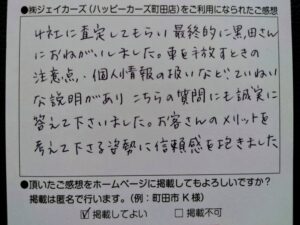 ●㈱ジェイカーズ（ハッピーカーズ町田店）をご利用になられたご感想
4社に査定してもらい 最終的に黒田さん
におねがいしました。車を手放すときの
注意点、個人情報の扱いなど、ていねい
な説明があり こちらの質問にも誠実に
答えて下さいました。お客さんのメリットを
考えて下さる姿勢に信頼感を抱きました
●頂いたご感想をホームページに掲載してもよろしいですか？
掲載は匿名で行います。（例：町田市 K 様）
☑ 掲載してよい　□ 掲載不可